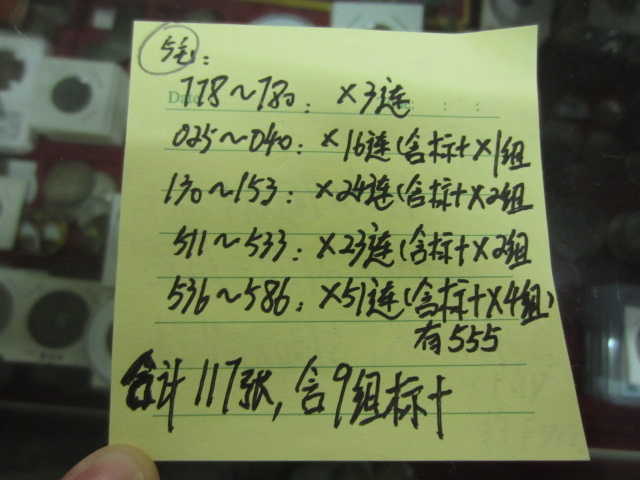 5毛:
778~780: ×3连
025~040: ×16连(含标十×1组
130~153: ×24连(含标十×2组
511~533: ×23连(含标十×2组
536~586: ×51连(含标十×4组)
有555
合计117张,含9组标十